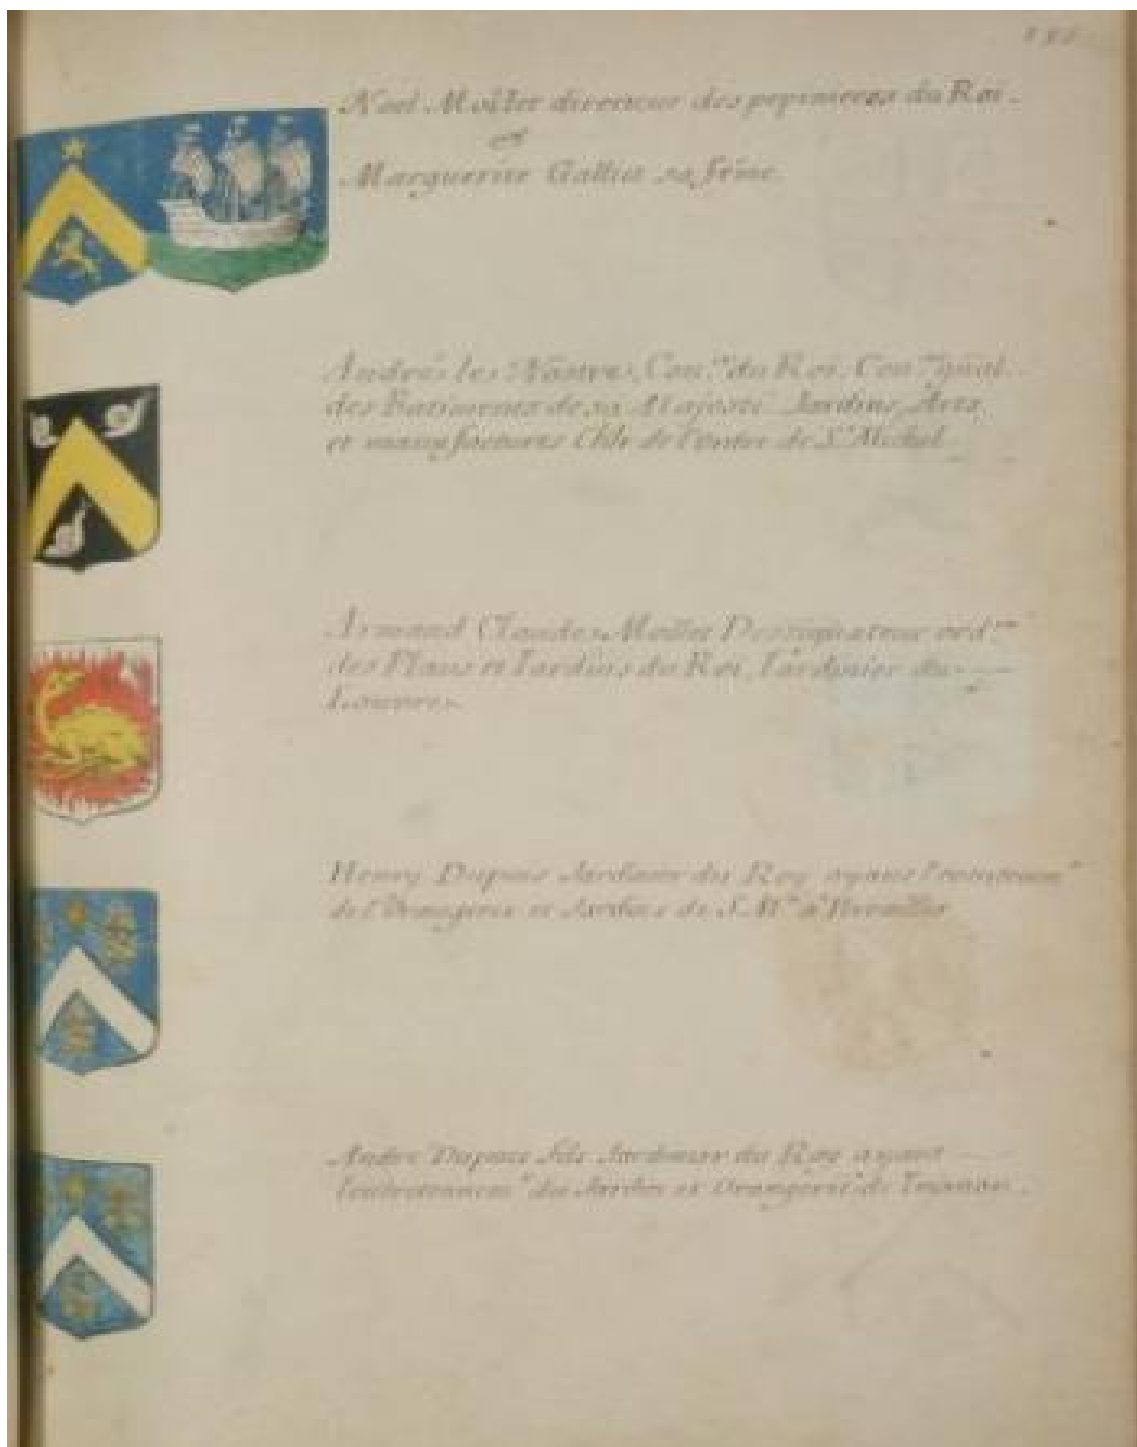 Noel Mollet directeur des pepinieres du Roi.
et
Marguerite Gallien sa feme.
André le Nostre, Con.er du Roi, Con.
des Batiments de sa Majesté Jardins, Arts,
et manufactures de l'ordre de St. Michel
Armand Claude Mollet Dessignateur ord.re
des Plans et Jardins du Roi, Jardinier du
Louvre
Henry Dupuis Jardinier du Roy ayant l'entretenem.t
de l'Orangerie et Jardins de S. M. a Versailles
André Dupuis fils Jardinier du Roy ayant
l'entretenem.t du Jardin et Orangerie de Trianon.